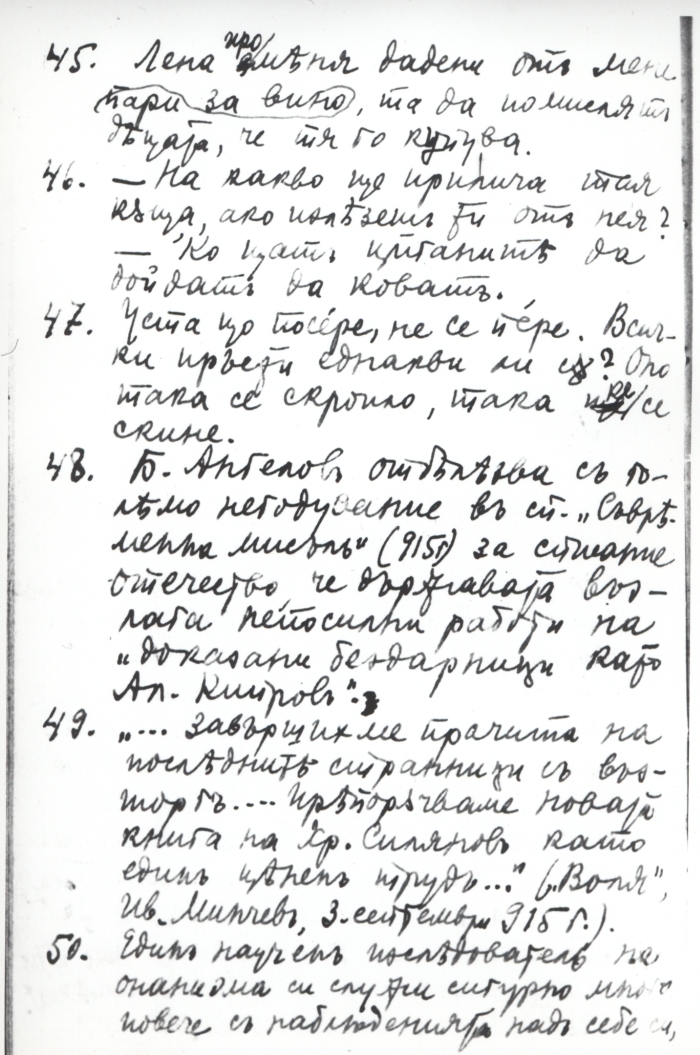 45. Лена промѣня дадени отъ мене
пари за вино, та да помислятъ
дѣцата, че тя го купува.
46. — На какво ще прилича тая
кѫща, ако излѣзешъ ти отъ нея?
— 'Ко щатъ циганитѣ да
дойдатъ да коватъ.
47. Уста що посе́ре, не се пе́ре. Всич-
ки пръсти еднакви ли сѫ? Оно
така се скроило, така ке се
скине.
48. Б. Ангеловъ отбѣлѣзва съ го-
лѣмо негодувание въ сп. „Съврѣ-
менна мисъль" (915 г) за списание
отечество, че държавата въз-
лага непосилни работи на
„доказани бездарници като
Ал. Кипровъ".
49. „... завършихме прочита на
послѣднитѣ странници съ въз-
торгъ.... Прѣпорѫчваме новата
книга на Хр. Силяновъ като
единъ цѣненъ трудъ..." („Воля",
Ив. Минчевъ, 3. септември 915 г.).
50. Единъ наученъ изслѣдователь на
онанизма си служи сигурно много
повече съ наблюденията надъ себе си,